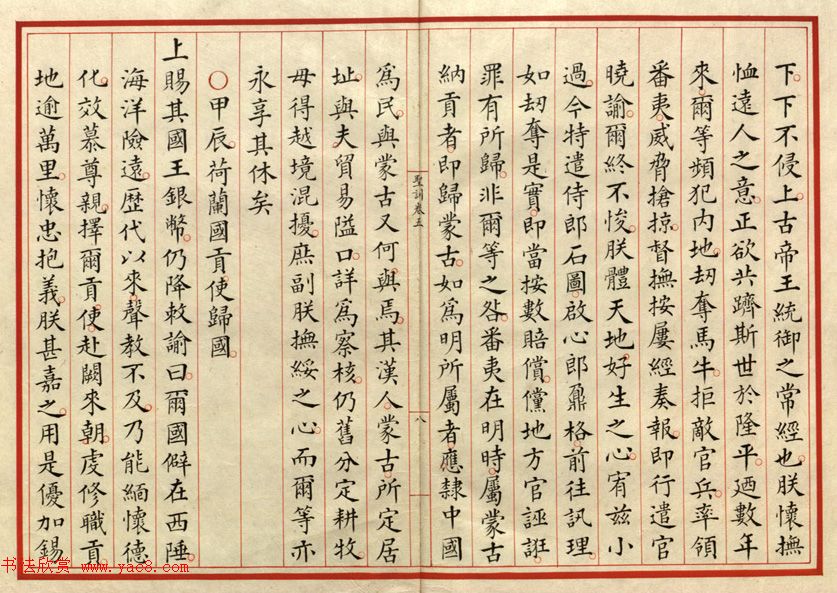 下下不侵上古帝王統御之常經也朕懷撫
恤遠人之意正欲共躋斯世於隆平廼數年
來爾等頻犯內地刧奪馬牛拒敵官兵率領
番夷威脅搶掠督撫按屢經奏報即行遣官
曉諭爾終不悛朕體天地好生之心宥兹小
過今特遣侍郎石圖啟心郎鼐格前往訊理
如刧奪是實即當按數賠償儻地方官誣誑
罪有所歸非爾等之咎番夷在明時屬蒙古
納貢者即歸蒙古如爲明所屬者應隸中國
聖訓卷五
八
爲民與蒙古又何與焉其漢人蒙古所定居
址與夫貿易隘口詳爲察核仍舊分定耕牧
毋得越境混擾庶副朕撫綏之心而爾等亦
永享其休矣
○甲辰荷蘭國貢使歸國
上賜其國王銀幣仍降敕諭曰爾國僻在西陲
海洋險遠歷代以來聲教不及乃能緬懷德
化效慕尊親擇爾貢使赴闕來朝虔修職貢
地逾萬里懷忠抱義朕甚嘉之用是優加錫
书法欣赏 www.yac8.com